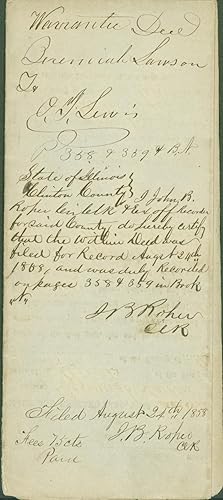 Warrantee Deed
Jeremiah Lawson
To
O. J. Lewis
P 358 & 359 B. N
State of Illinois
Clinton County } I John B.
Roper Cir Clk & Ex off Recorder
for said County do hereby certify
that the within Deed was
filed for Record August 24th
1858, and was duly Recorded
on pages 358 & 359 in Book
N.
J B Roper
Clk
Filed August 24th 1858
Fees 75 cts J. B. Roper
Paid Clk